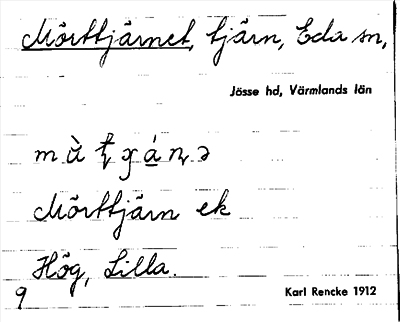 Mörttjärnet, tjärn, Eda sn,
Jösse hd, Värmlands län
Mörttjärn ek
Hög, Lilla.
9
Karl Rencke 1912